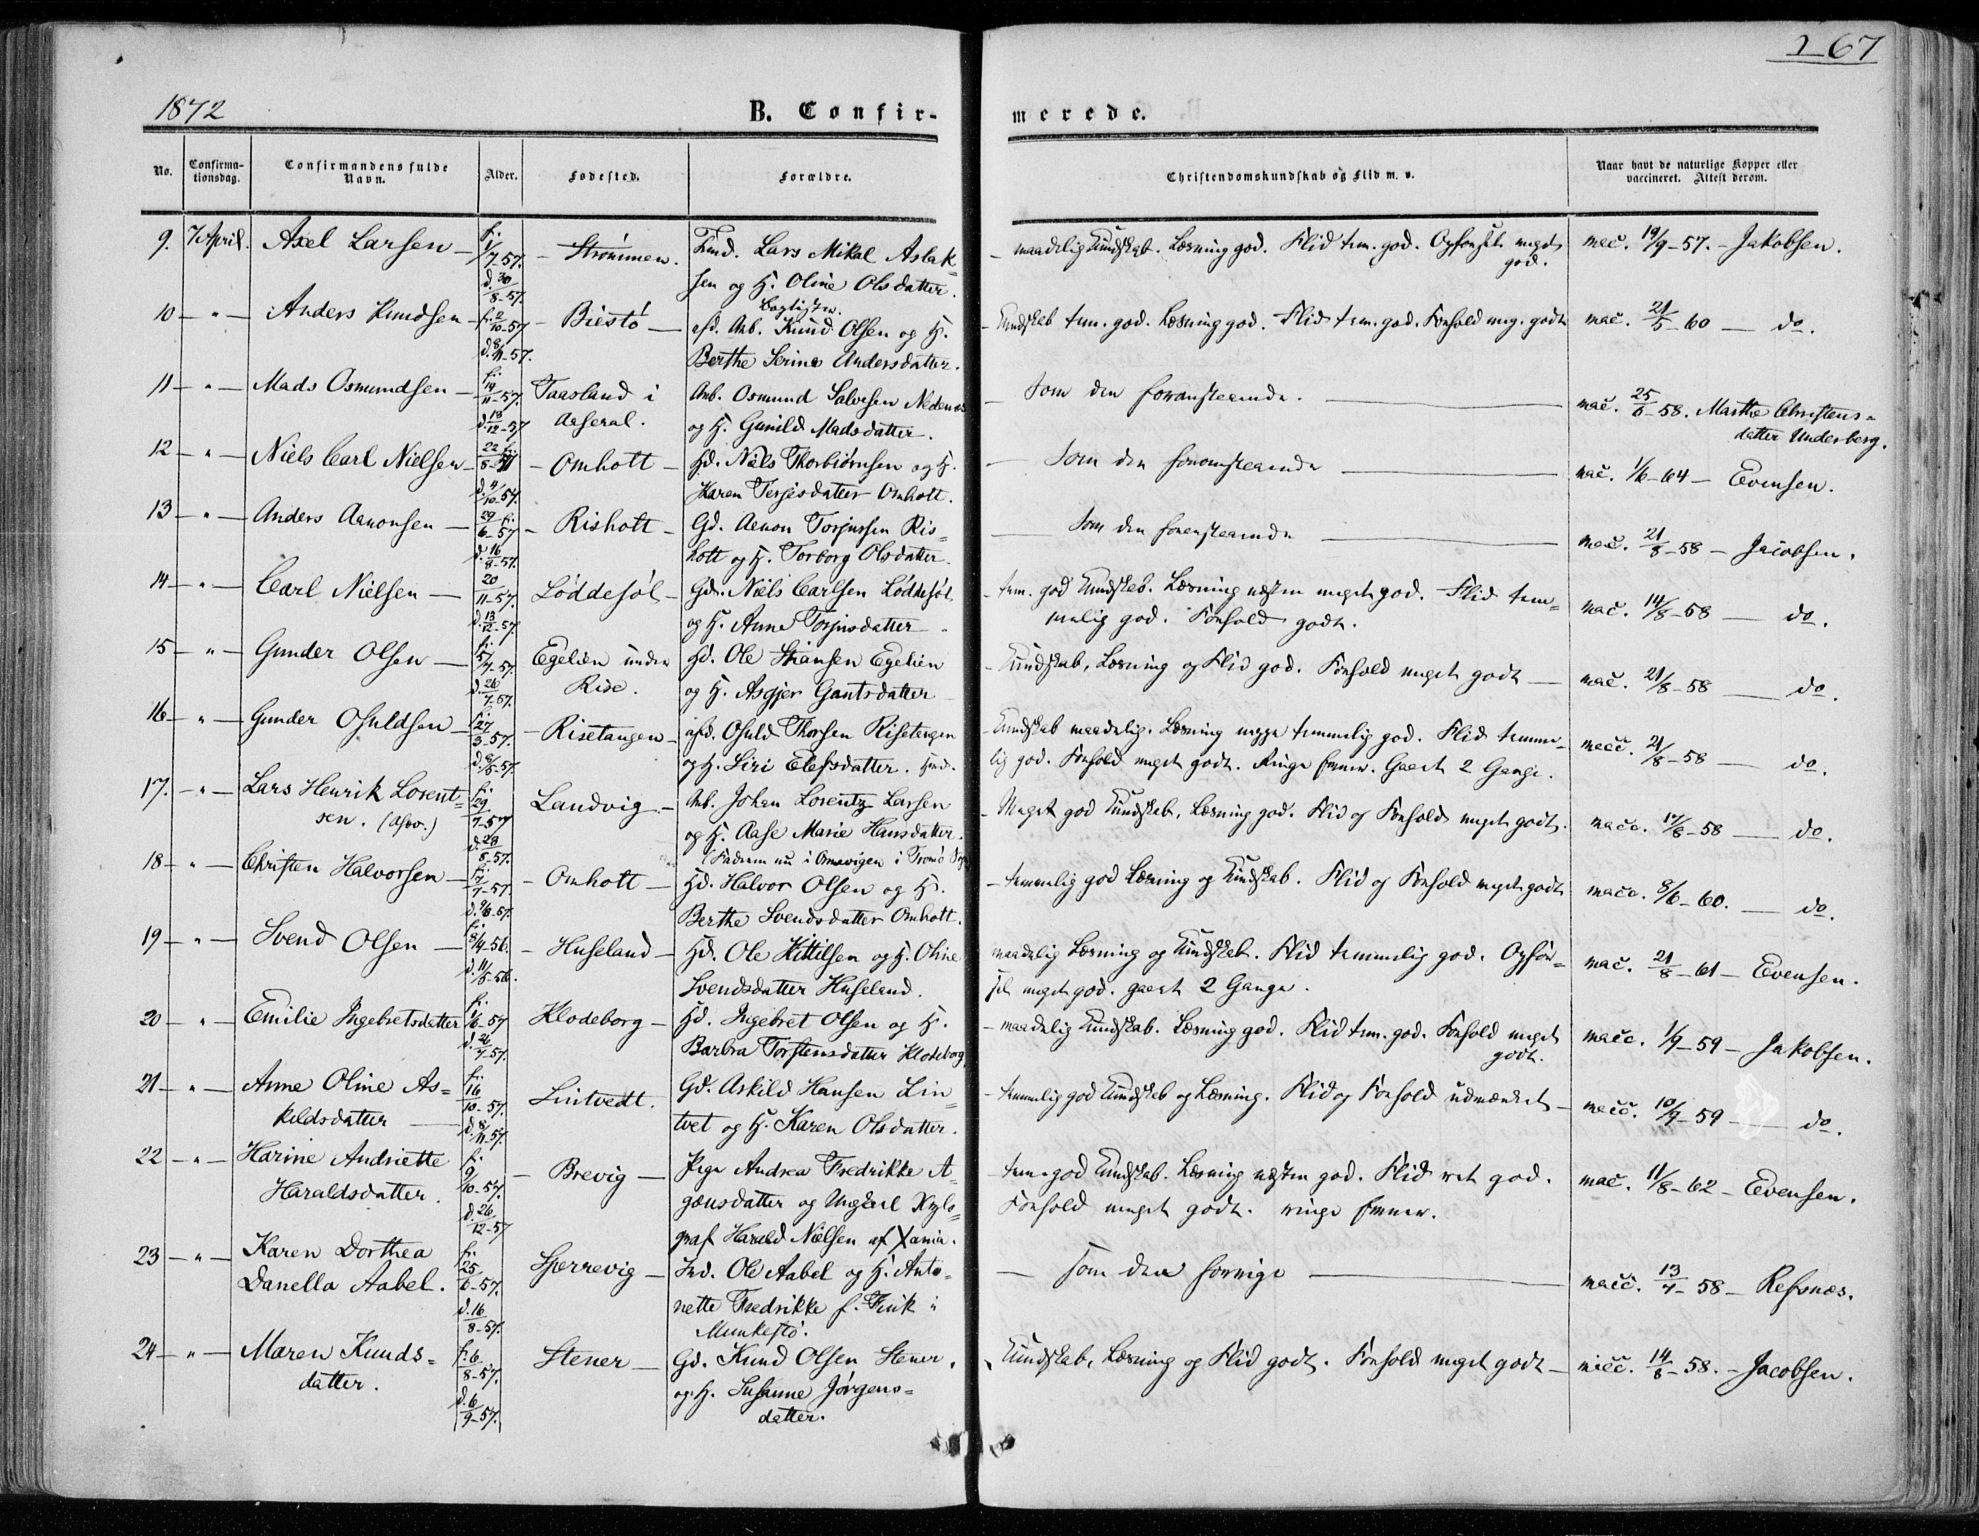 267
1872
B. Confirmerede.
No. Confirmationsdag. Confirmandens fulde Navn. Alder. Fødested. Forældre. Christendomskundskab og Flid m. v. Naar havt de naturlige Kopper eller vaccineret. Attest derom.
9. 7 April. Axel Larsen — f. 1/7-57. d. 30/8-57. — Strømmen. Lars Mikal Aslak-
sen og H. Oline Olsdatter.
— maadelig Kundskab. Læsning god. Flid tem. god. Opførsel meget god. vac. 19/9-57. — Jakobsen.
10 — " — Anders Knudsen — f. 2/10-57 d. 8/11-57. — Biestø — afd. Arb. Knud Olsen og H.
Berthe Serine Andersdatter.
— Kundskab tem. god. Læsning god. Flid tem. god. Forhold meg. godt vac. 21/5-60 — do.
11 — " — Mads Osmundsen — f. 19/11-57. d. 18/12-57 Taasland i Aaseral. Arb. Osmund Salvesen Nedenæs
og H. Gunild Madsdatter.
— Som den foranstaaende. — vac. 25/6-58. Marthe Christens-
datter Underberg.
12 — " — Niels Carl Nielsen — d. 4/10-57. — Omholt — Hd. Niels Thorbiørnsen og H.
Karen Terjesdatter Omholt.
— Som den foranstaaende — vac. 1/6-64 — Evensen.
13 — " — Anders Aanonsen — 29/6-57 d. 16/8-57. — Risholt — Gd. Aanon Torjussen Ris-
holt og H. Torborg Olsdatter.
— Som den foranstaaende — vac. 21/8-58 — Jacobsen.
14 — " — Carl Nielsen — 20/11-57. d. 13/12-57. Løddesøl — Gd. Niels Carlsen Løddesøl
og H. Anne Torjusdatter
— tem. god Kundskab. Læsning næsten meget god. Flid tem-
melig god. Forhold godt. vac. 14/8-58 — do.
15 — " — Gunder Olsen — f. 5/7-57. d. 26/7-57. Egelien under Rise. Hd. Ole Stiansen Egelien
og H. Asgjer Gautsdatter
— Kundskab, Læsning og Flid god. Forhold meget godt — vac. 21/8-58 — do.
16 — " — Gunder Osuldsen — f. 27/3-57. — Risetangen — afd. Osuld Thorsen Risetangen
og H. Siri Elefsdatter.
Kundskab maadelig. Læsning neppe temmelig god. Flid temme-
lig god. Forhold meget godt. Ringe Evner. Gaaet 2 Gange. vacc. 21/8-58 — do.
17. — " — Lars Henrik Lorent-
sen. f. 29/7-57 d. 28/8-57. Landvig — Arb. Johan Lorentz Larsen
og H. Aase Marie Hansdatter.
— Meget god Kundskab, Læsning god. Flid og Forhold meget godt. vacc. 17/8-58 — do.
18 — " — Christen Halvorsen — — Omholt — Hd. Halvor Olsen og H.
Berthe Svendsdatter Omholt.
— temmelig god Læsning og Kundskab. Flid og Forhold meget godt vacc. 8/6-60. — do.
19 — " — Svend Olsen — f. 8/4-56. — Huseland — Hd. Ole Kittilsen og H. Oline
Svendsdatter Huseland.
maadelig Læsning og Kundskab. Flid temmelig god. Opfør-
sel meget god. gaaet 2 Gange. vac. 21/8-61 — Evensen.
20 — " — Emilie Ingebretsdatter f. 1/6-57 d. 26/7-57. Klodeborg — Hd. Ingebret Olsen og H.
Barbra Torstensdatter Klodeborg
— maadelig Kundskab. Læsning god. Flid tem. god. Forhold meget godt. vacc. 1/9-59 — Jakobsen.
21 — " — Anne Oline As-
kildsdatter — f. 16/10-57. d. 8/11-57. Lintvedt. Gd. Askild Hansen Lin-
tvet og H. Karen Olsdatter.
— temmelig god Kundskab og Læsning. Flid og Forhold udmærket — vacc. 10/9-59 — do.
22 — " — Harine Andriette
Haraldsdatter. f. 9/10-57. d. 26/12-57 — Brevig — Pige Andrea Fredrikke A-
gænsdatter og Ungkarl Xylo-
graf Harald Nielsen af Xania.
— tem. god Kundskab. Læsning næsten god. Flid ret god.
Forhold meget godt. ringe Evner. vac. 11/8-62 — Evensen.
23 — " — Karen Dorthea
Danella Aabel. f. 25/6-57. d. 16/8-57. Hærrevig — Ind. Ole Aabel og H. Anto-
nette Fredrikke f. Fink i
Munkestø.
— som den forrige — vacc. 13/7-58 — Refsnæs.
24 — " — Maren Knuds-
datter. f. 6/8-57. d. 6/9-57. Stener — Gd. Knud Olsen Stener
og H. Susanne Jørgens-
datter.
Kundskab, Læsning og Flid godt. Forhold meget godt — vacc. 14/8-58. — Jacobsen.